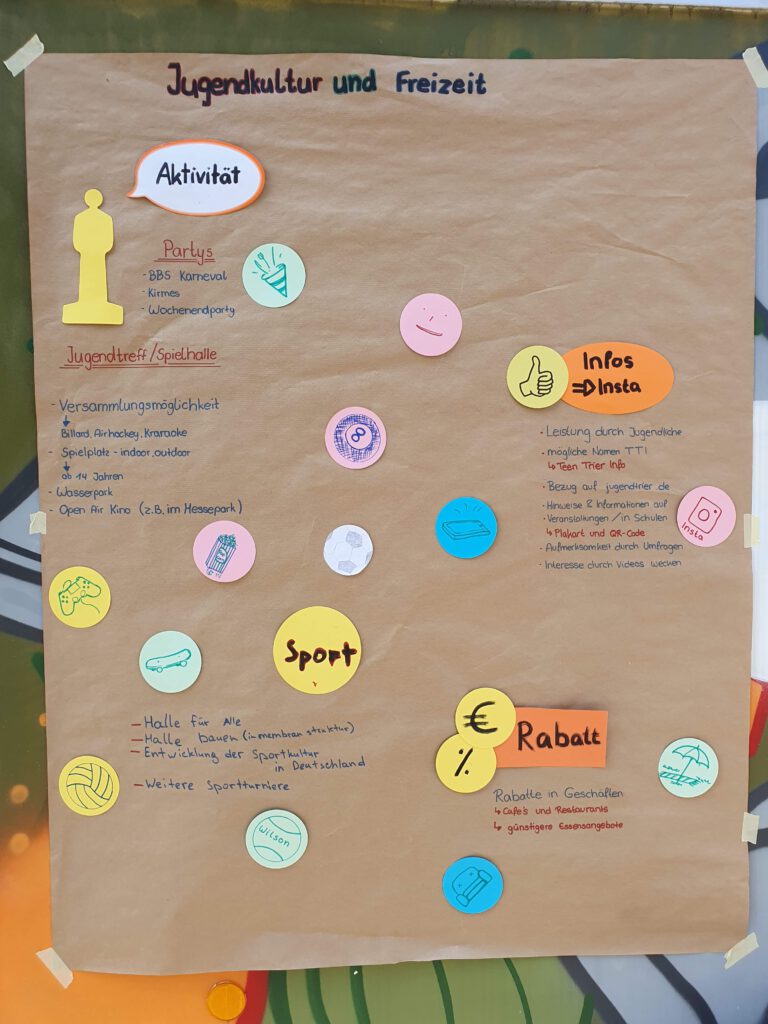 Jugendkultur und Freizeit
Aktivität
Partys
- BBS Karneval
- Kirmes
- Wochenendparty
Jugendtreff/Spielhalle
- Versammlungsmöglichkeit
↓
Billard, Airhockey, Kraraoke
- Spielplatz - indoor, outdoor
↓
ab 14 Jahren
- Wasserpark
- Open Air Kino (z.B. im Messepark)
8
Infos
⇒ Insta
- Leistung durch Jugendliche
- mögliche Namen TTI
↳ Teen Trier Info
- Bezug auf jugendtrier.de
- Hinweise & Informationen auf
- Veranstaltungen /in Schulen
↳ Plakart und QR-Code
- Aufmerksamkeit durch Umfragen
- Interesse durch Videos wecken
Insta
Sport
- Halle für Alle
- Halle bauen (in membran struktur)
- Entwicklung der Sportkultur
in Deutschland
- Weitere Sportturniere
Wilson
€
%
Rabatt
Rabatte in Geschäften
↳ Cafe's und Restaurants
↳ günstigere Essensangebote